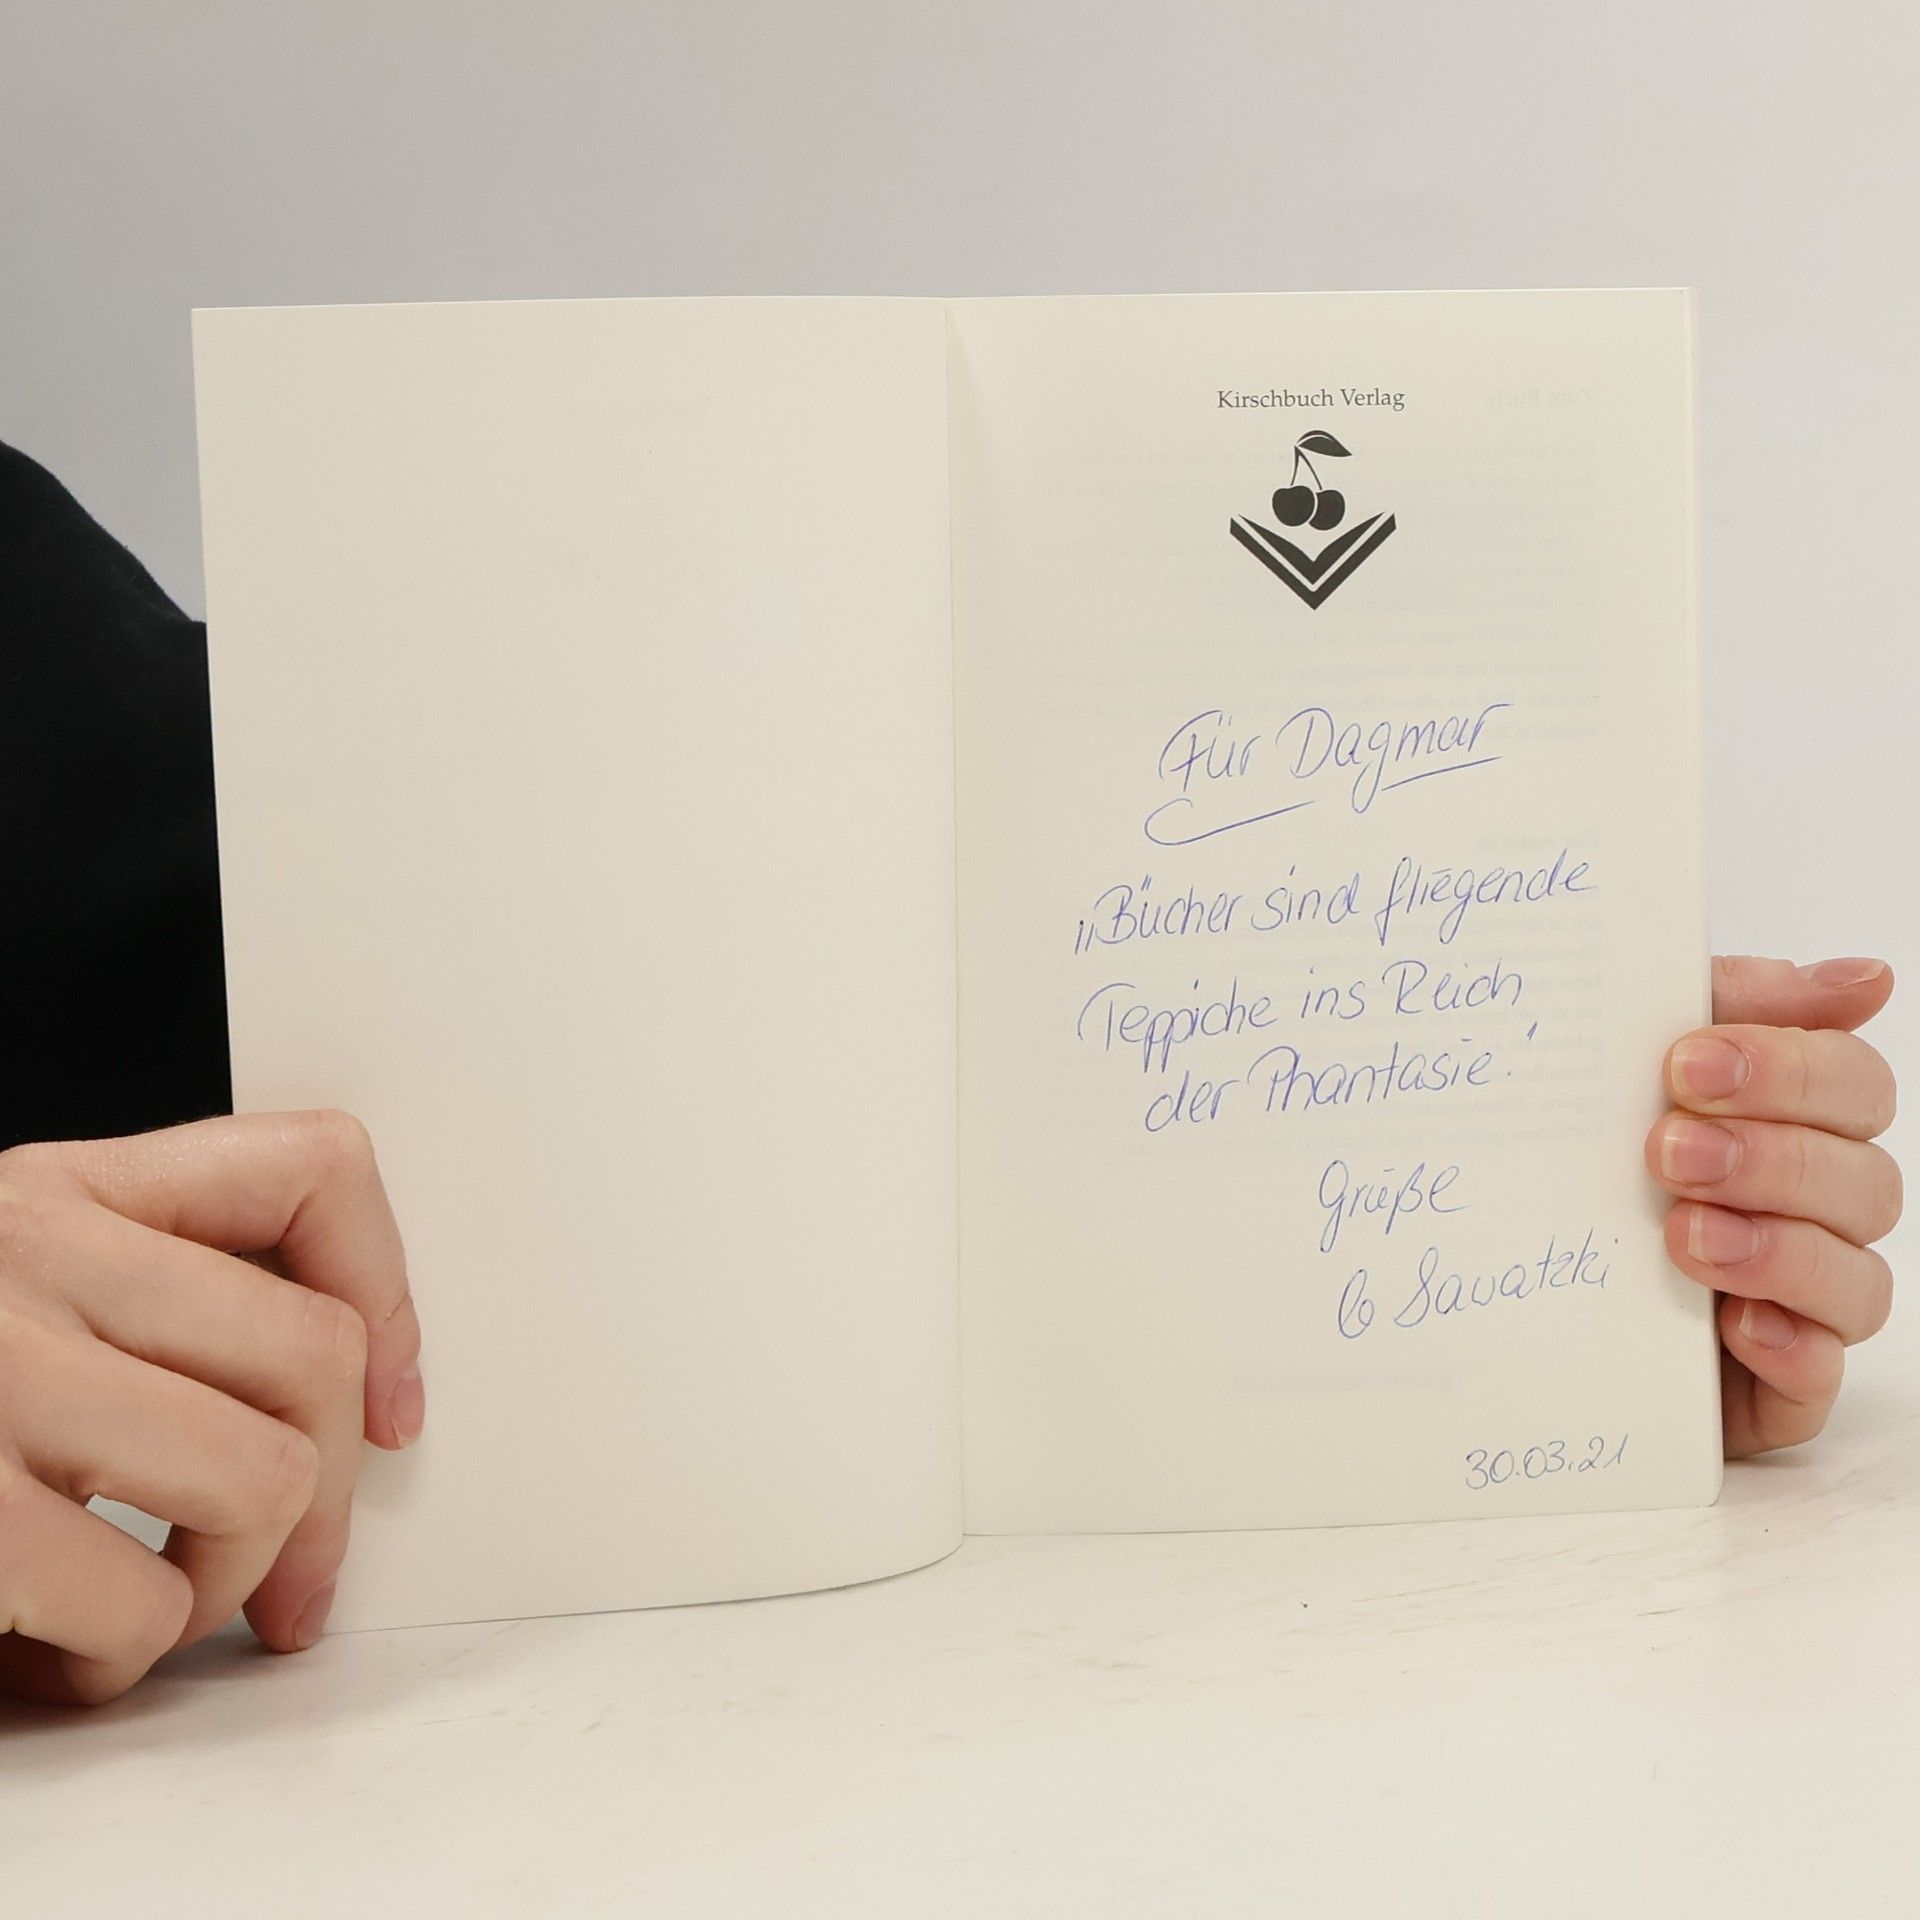 Kirschbuch Verlag
Für Dagmar
„Bücher sind fliegende
Teppiche ins Reich
der Phantasie."
Grüße
Sawatzki
30.03.21